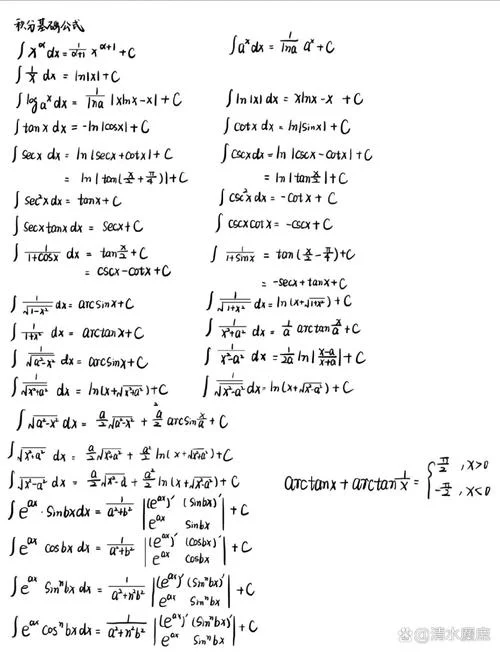 积分基础公式
∫x^α dx = 1/(α+1) x^(α+1) + C ∫a^x dx = 1/lna a^x + C
∫1/x dx = ln|x| + C
∫log a^x dx = 1/lna |xlnx-x| + C ∫ln|x| dx = xlnx-x + C
∫tanx dx = -ln|cosx| + C ∫cotx dx = ln|sinx| + C
∫secx dx = ln|secx+cotx| + C ∫cscx dx = ln|cscx-cotx| + C
= ln|tan(x/2+π/4)| + C = ln|tan x/2| + C
∫sec²x dx = tanx + C ∫csc²x dx = -cotx + C
∫secxtanx dx = secx + C ∫cscxcotx = -cscx + C
∫1/(1+cosx) dx = tan x/2 + C ∫1/(1+sinx) = tan(x/2-π/4) + C
= cscx-cotx + C = -secx+tanx + C
∫1/√(1-x²) dx = arcsinx + C ∫1/√(1+x²) dx = ln(x+√(1+x²)) + C
∫1/(1+x²) dx = arctanx + C ∫1/(x²+a²) dx = 1/a arctan x/a + C
∫1/√(a²-x²) dx = arcsinx + C ∫1/(x²-a²) dx = 1/2a ln|(x-a)/(x+a)| + C
∫1/√(x²+a²) dx = ln(x+√(x²+a²)) + C ∫1/√(x²-a²) dx = ln(x+√(x²-a²)) + C
∫√(a²-x²) dx = a/2 √(a²-x²) + a²/2 arcsin x/a + C
∫√(x²+a²) dx = a/2 √(x²+a²) + a²/2 ln(x+√(x²+a²)) + C
∫√(x²-a²) dx = a/2 √(x²-a) + a²/2 ln(x+√(x²-a²)) + C
arctanx + arctan 1/x = { π/2 , x>0
-π/2 , x<0
∫e^(ax)·sinbx dx = 1/(a²+b²) |(e^(ax))' (sinbx)'| + C
e^(ax) sinbx
∫e^(ax) cosbx dx = 1/(a²+b²) |(e^(ax))' (cosbx)'| + C
e^(ax) cosbx
∫e^(ax) sin^n bx dx = 1/(a²+n²b²) |(e^(ax))' (sin^n bx)'| + C
e^(ax) sin^n bx
∫e^(ax) cos^n bx dx = 1/(a²+n²b²) |(e^(ax))' (sin^n bx)'| + C
e^(ax) sin^n bx